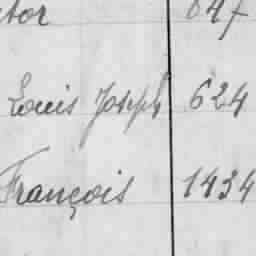 647
Louis Joseph 624
François 1434